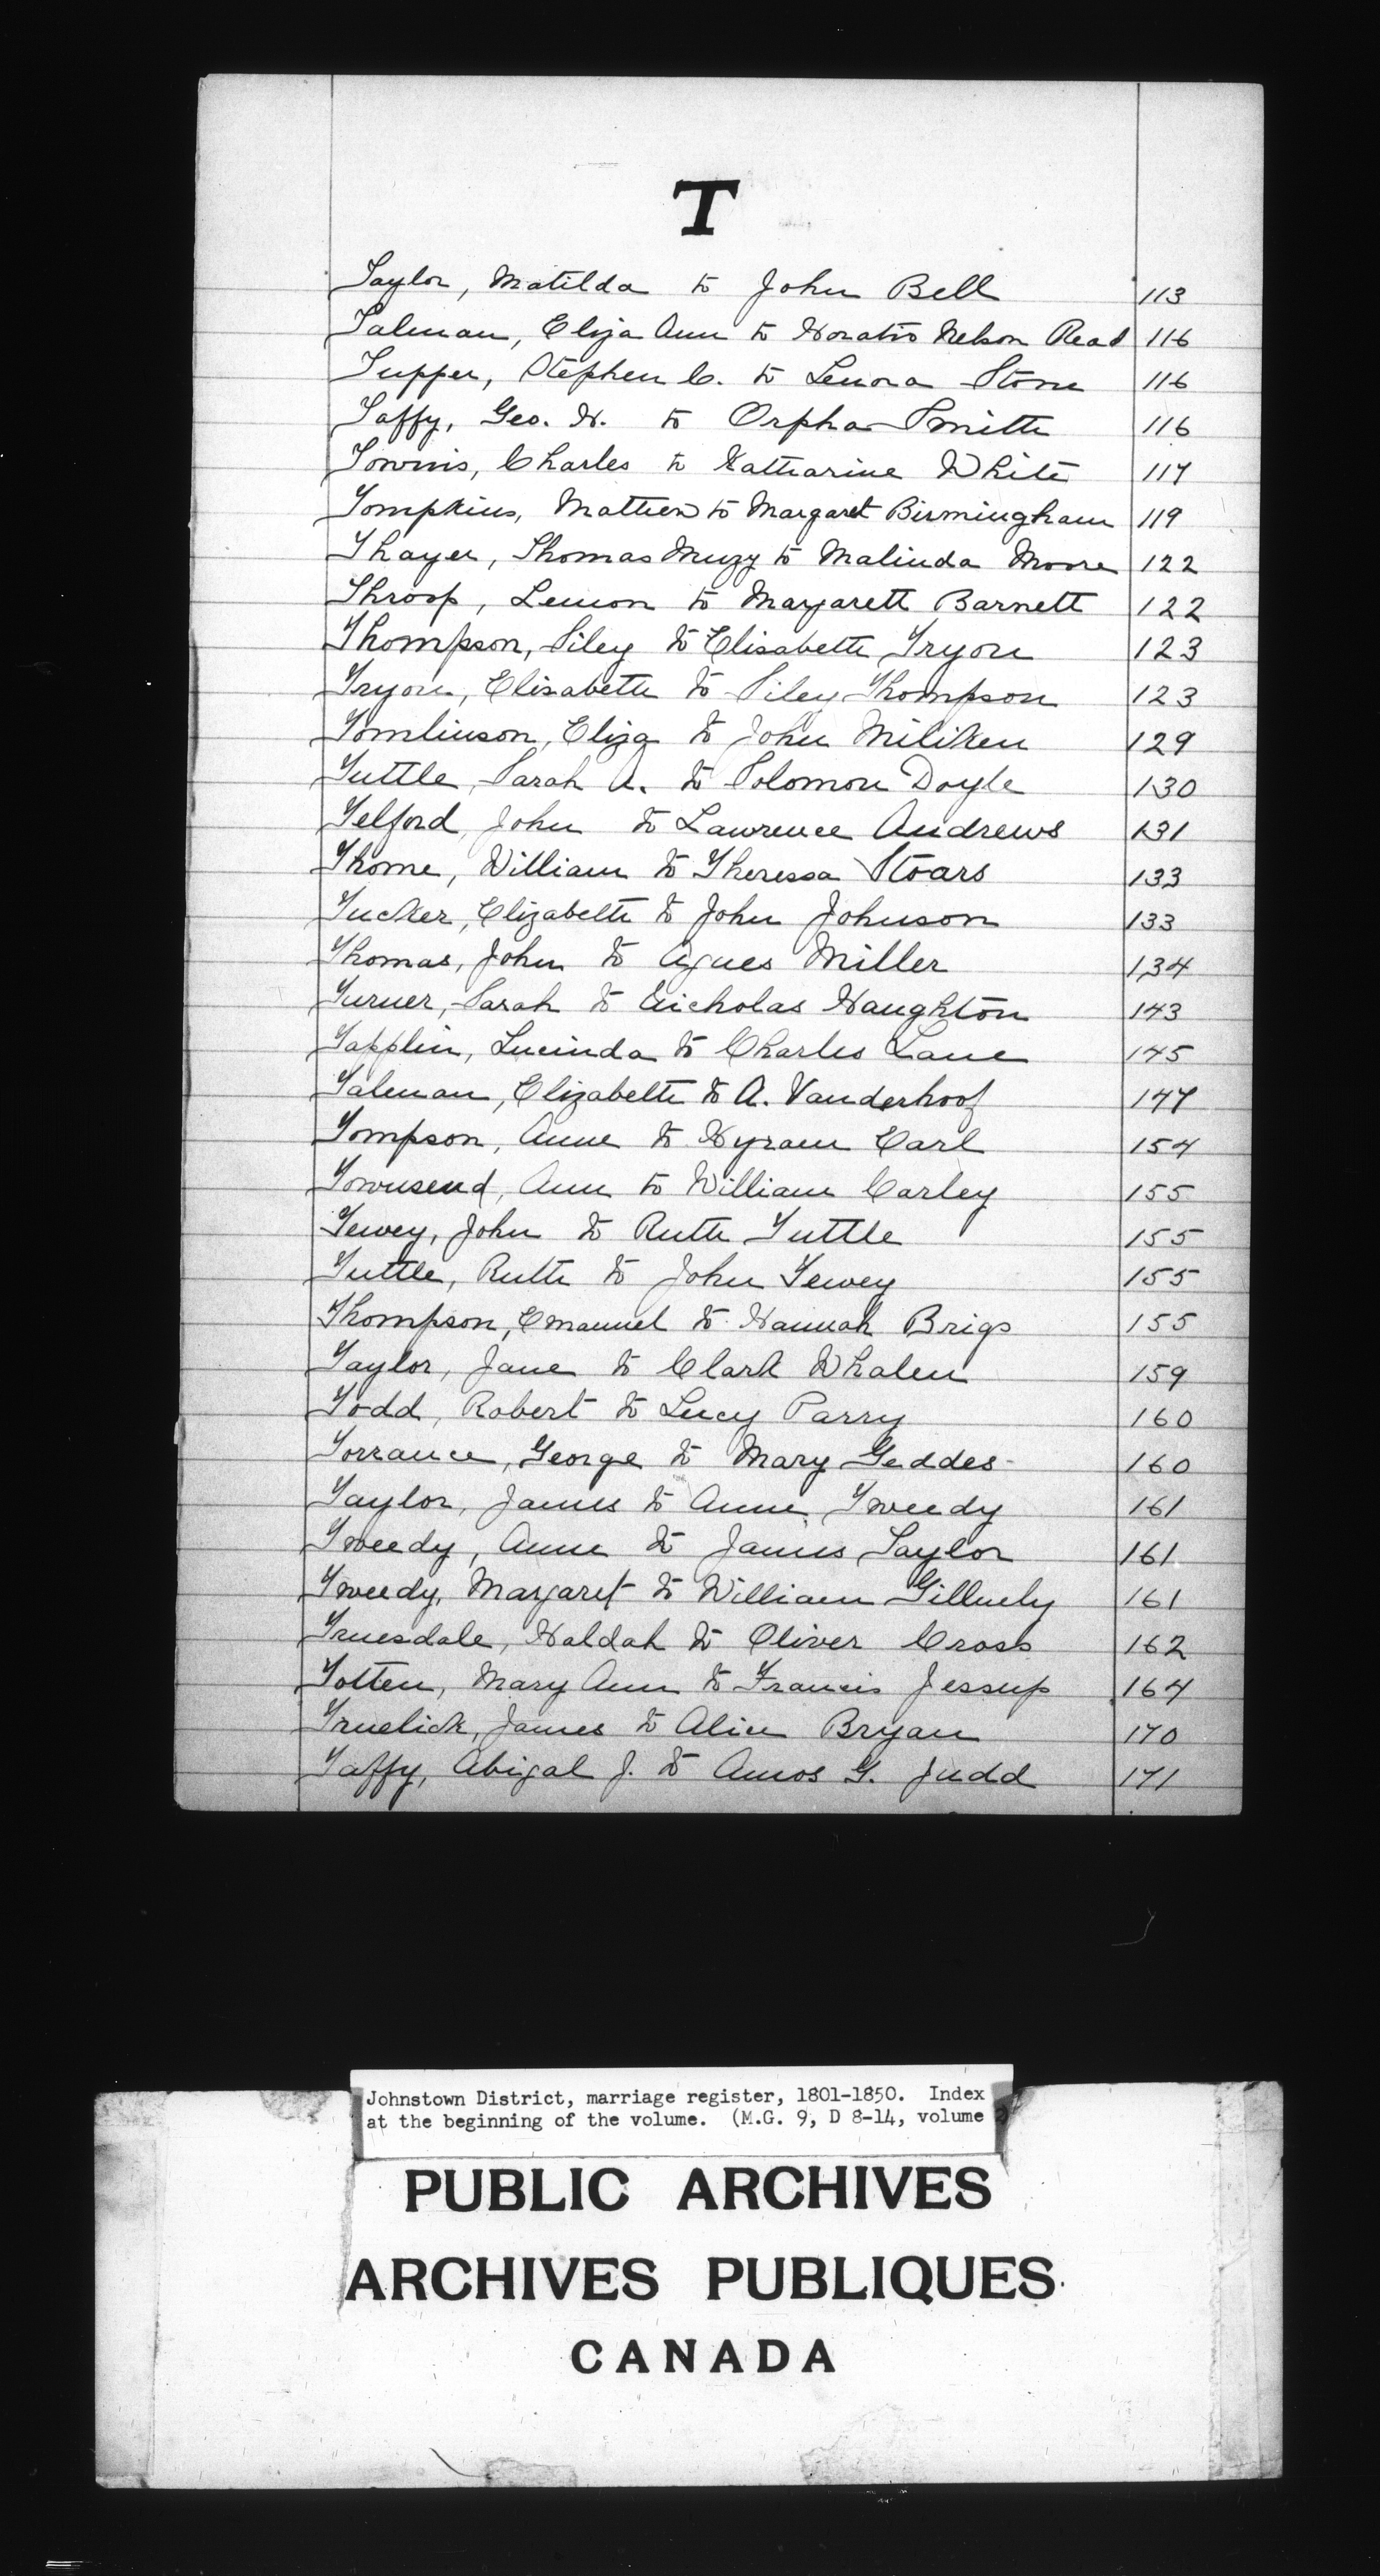 T
Taylor, Matilda to John Bell 113
Talman, Eliza Ann to Horatio Nelson Read 116
Tupper, Stephen C. to Lenora Stone 116
Taffy, Geo. H. to Orpha Smith 116
Townis, Charles to Katharine White 117
Tompkins, Mathew to Margaret Birmingham 119
Thayer, Thomas Muzy to Malinda Moore 122
Throop, Lemon to Margarett Barnett 122
Thompson, Siley to Elisabeth Tryon 123
Tryon, Elisabeth to Siley Thompson 123
Tomlinson, Eliza to John Miliken 129
Tuttle, Sarah A. to Solomon Doyle 130
Telford, John to Lawrence Andrews 131
Thome, William to Theressa Stoars 133
Tucker, Elizabeth to John Johnson 133
Thomas, John to Agnes Miller 134
Turner, Sarah to Nicholas Haughton 143
Tapplin, Lucinda to Charles Lane 145
Talman, Elizabeth to A. Vanderhoof 147
Tompson, Anne to Hyram Carl 154
Townsend, Ann to William Carley 155
Tewey, John to Ruth Tuttle 155
Tuttle, Ruth to John Tewey 155
Thompson, Emanuel to Hannah Brigs 155
Taylor, Jane to Clark Whalen 159
Todd, Robert to Lucy Parry 160
Torrance, George to Mary Geddes 160
Taylor, James to Anne Tweedy 161
Tweedy, Anne to James Taylor 161
Tweedy, Margaret to William Gilluely 161
Truesdale, Haldah to Oliver Cross 162
Totten, Mary Ann to Francis Jessup 164
Truelick, James to Alice Bryan 170
Taffy, Abigal J. to Amos G. Judd 171
Johnstown District, marriage register, 1801-1850. Index
at the beginning of the volume. (M.G. 9, D 8-14, volume
PUBLIC ARCHIVES
ARCHIVES PUBLIQUES
CANADA